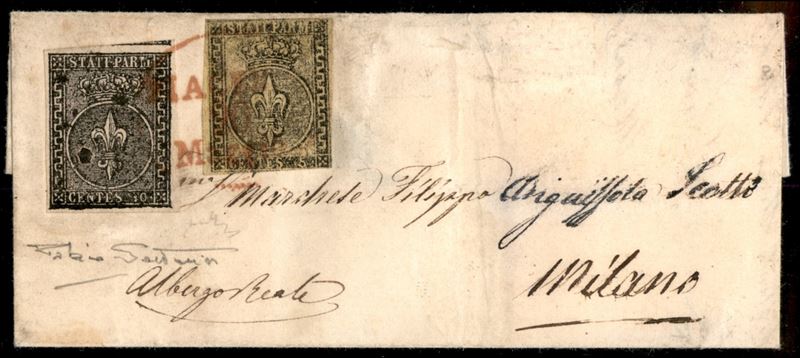 STATI PARM
STATI PARM
CENTES. 10
CENTES. 5
Marchese Filippo Anguissola Scotti
Milano
Albergo Reale